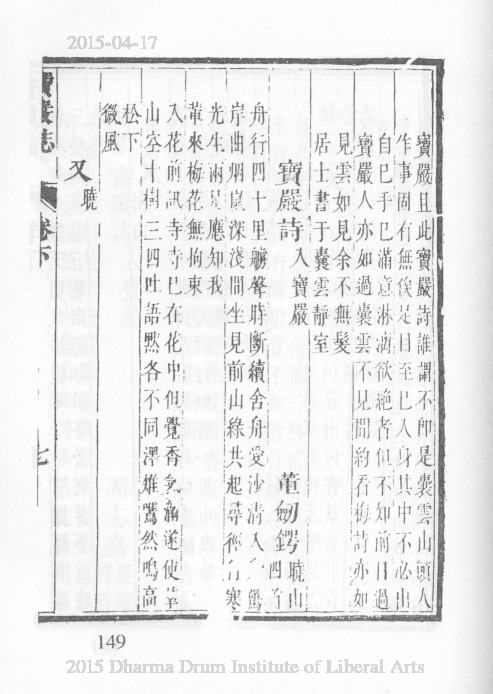 2015-04-17
寶嚴且此寶嚴詩誰謂不即是囊雲山頭人
作事固有無俟足目至巳人身其中不必出
自巳手巳滿意淋漓欲絶者但不知前日過
寶嚴人亦如過囊雲不見間約看梅詩亦如
見雲如見余不無髮
居士書于囊雲靜室
寶嚴詩 入寶嚴 董劒鍔 曉山 四首
舟行四十里 聲時斷續舍舟愛沙清人 驚
岸曲烟 深淺間生見前山綠共起尋 寒
光生兩足應知我
華來梅花無拘束
入花前訊寺寺巳在花中但覺香 滿遂使
山空大樹三四吐語黙各不同澤雉驚然鳴高
松下
微風
又 曉
寶嚴誌 卷下 七
149
2015 Dharma Drum Institute of Liberal Arts